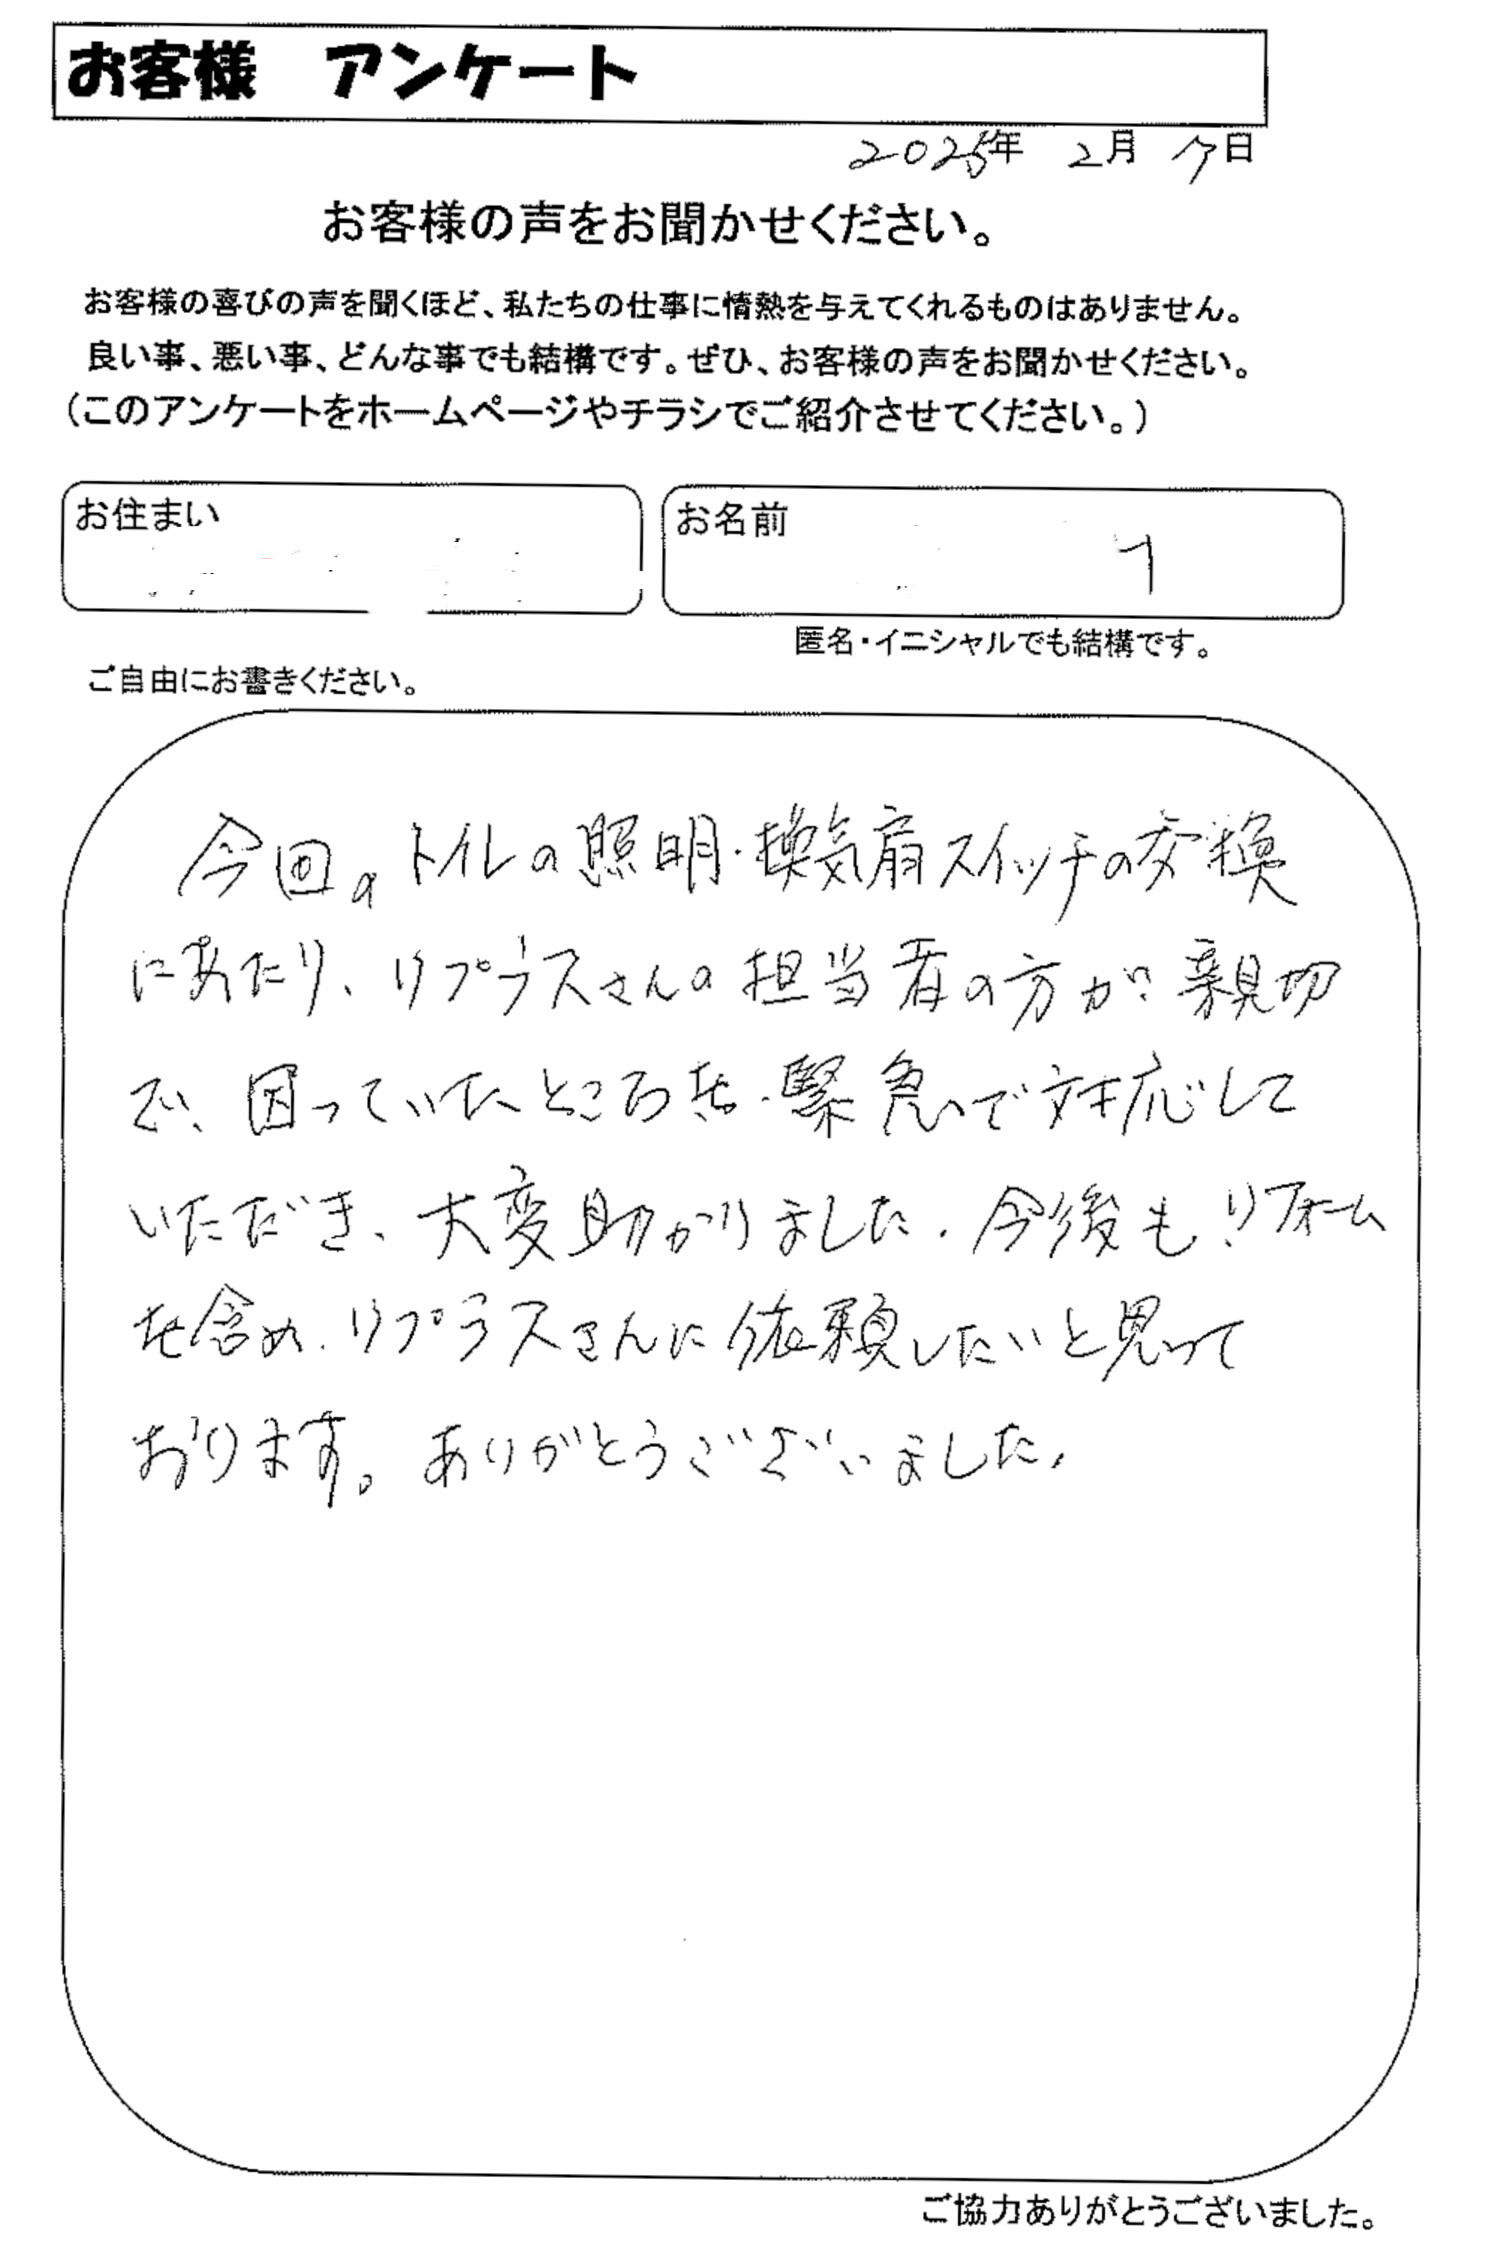 お客様 アンケート
2025年 2月 17日
お客様の声をお聞かせください。
お客様の喜びの声を聞くほど、私たちの仕事に情熱を与えてくれるものはありません。
良い事、悪い事、どんな事でも結構です。ぜひ、お客様の声をお聞かせください。
(このアンケートをホームページやチラシでご紹介させてください。)
お住まい
お名前
匿名・イニシャルでも結構です。
ご自由にお書きください。
今回のトイレの照明・換気扇スイッチの交換
にあたり、リプラスさんの担当者の方が親切
で、困っていたところを、緊急で対応して
いただき、大変助かりました。今後も、リフォーム
を含め、リプラスさんに依頼したいと思って
おります。ありがとうございました。
ご協力ありがとうございました。